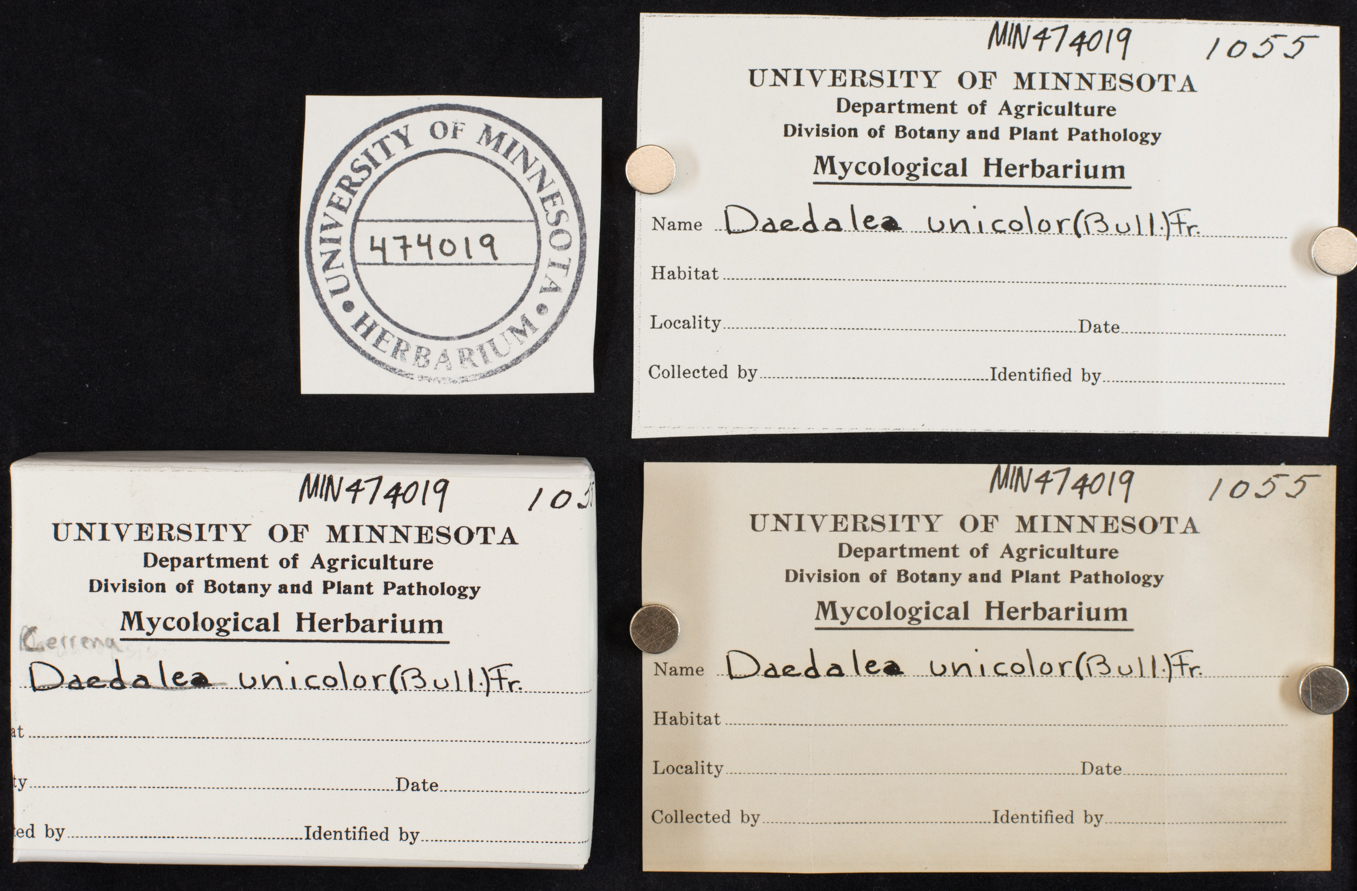 MIN474019 1055
UNIVERSITY OF MINNESOTA
Department of Agriculture
Division of Botany and Plant Pathology
Mycological Herbarium
Name Daedalea unicolor (Bull.) Fr.
Habitat
Locality Date
Collected by Identified by
UNIVERSITY OF MINNESOTA
474019
• HERBARIUM •
MIN474019 105
UNIVERSITY OF MINNESOTA
Department of Agriculture
Division of Botany and Plant Pathology
Mycological Herbarium
Cerrena
Daedalea unicolor (Bull.) Fr.
at
ty Date
ed by Identified by
MIN474019 1055
UNIVERSITY OF MINNESOTA
Department of Agriculture
Division of Botany and Plant Pathology
Mycological Herbarium
Name Daedalea unicolor (Bull.) Fr.
Habitat
Locality Date
Collected by Identified by